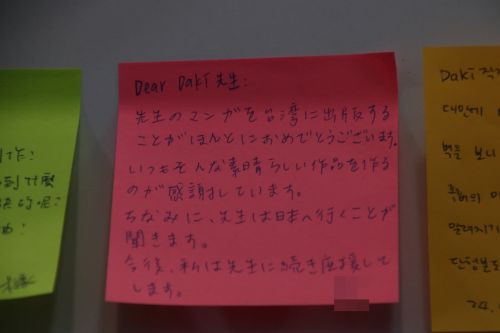 Dear Daki 先生:
先生のマンガを台湾に出版する
ことがほんとにおめでとうございます。
いつもそんな素晴らしい作品を作る
のが感謝しています。
ちなみに、先生は日本へ行くことが
聞きます。
今後、私は先生に続き応援して
します。
作!
到什麼
決的呢?
Daki 작
대만에
벽을 보니
24.